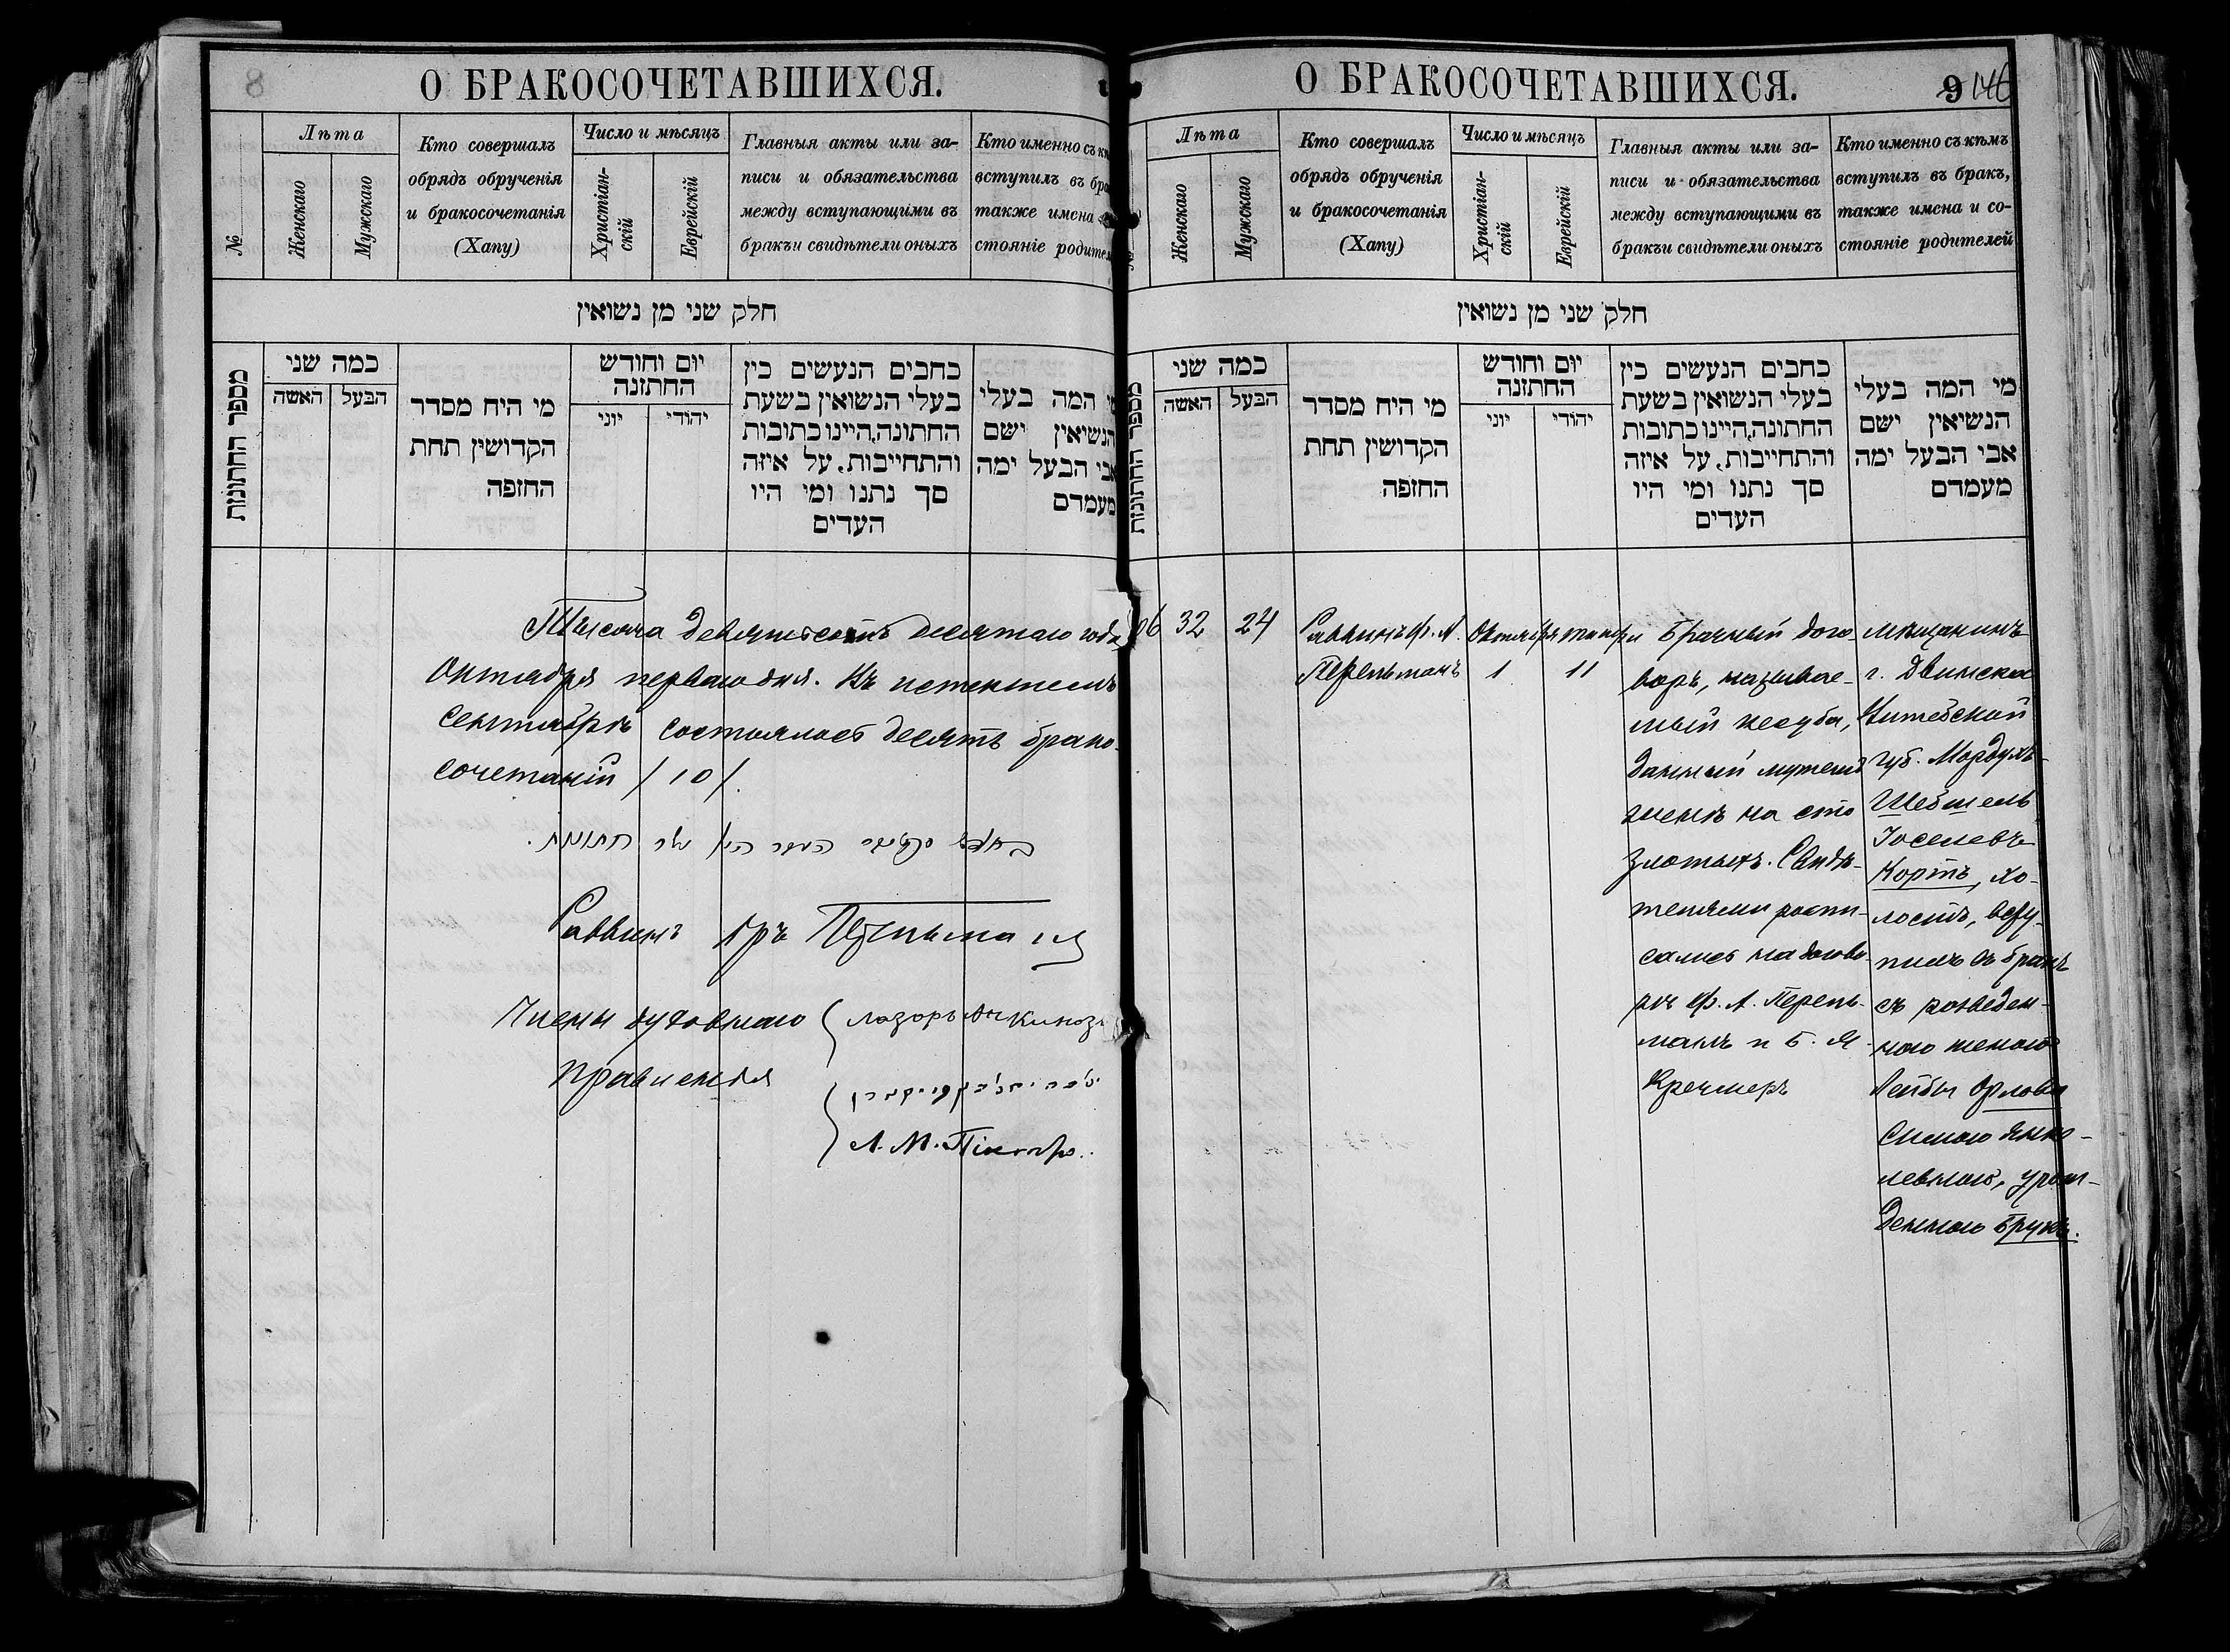 8
О БРАКОСОЧЕТАВШИХСЯ.
№
Лѣта
Женскаго
Мужскаго
Кто совершалъ
обрядъ обрученія
и бракосочетанія
(Хапу)
Число и мѣсяцъ
Христіан-
скій
Еврейскій
Главныя акты или за-
писи и обязательства
между вступающими въ
бракъ и свидѣтели оныхъ
Кто именно съ
вступилъ въ
также имена
стояніе
חלק שני מן נשואין
מספר החתונות
כמה שני
האשה
הבעל
מי היח מסדר
הקדושין תחת
החופה
יום וחודש
החתונה
יוני
יהודי
כחבים הנעשים כין
בעלי הנשואין בשעת
החתונה, היינו כתובות
והתחייבות, על איזה
סך נתנו ומי היו
העדים
המה בעלי
הנשיאין ישם
אבי הבעל ימה
מעמדם
Тысяча девятьсотъ десятаго года
Октября перваго дня. Въ истекшемъ
Сентябрѣ состоялось десять брако-
сочетаній /10/.
Раввинъ Перельманъ
Члены духовнаго
Правленія
Лазарь
Л. М.
О БРАКОСОЧЕТАВШИХСЯ.
9 146
Лѣта
Женскаго
Мужскаго
Кто совершалъ
обрядъ обрученія
и бракосочетанія
(Хапу)
Число и мѣсяцъ
Христіан-
скій
Еврейскій
Главныя акты или за-
писи и обязательства
между вступающими въ
бракъ и свидѣтели оныхъ
Кто именно съ кѣмъ
вступилъ въ бракъ,
также имена и со-
стояніе родителей
חלק שני מן נשואין
מספר החתונות
כמה שני
האשה
הבעל
מי היח מסדר
הקדושין תחת
החופה
יום וחודש
החתונה
יוני
יהודי
כחבים הנעשים כין
בעלי הנשואין בשעת
החתונה, היינו כתובות
והתחייבות, על איזה
סך נתנו ומי היו
העדים
מי המה בעלי
הנשיאין ישם
אבי הבעל ימה
מעמדם
32
24
Раввинъ Ф. Л.
Перельманъ
Октября
1
тишри
11
Брачный дого-
воръ, называе-
мый кесуба,
данный мужемъ
женѣ на сто
злотыхъ. Свидѣ-
телями распи-
сались на догово-
рѣ Ф. Л. Перель-
манъ и Б. Я.
Кречмеръ
Мѣщанинъ
г. Двинска
Витебской
губ. Мордухъ-
Шебшель
Іоселевъ
Кортъ, хо-
лостъ, всту-
пилъ въ бракъ
съ разведен-
ною женою
Лейбы Орлова
Симою Янке-
левною, урож-
денною Брукъ.